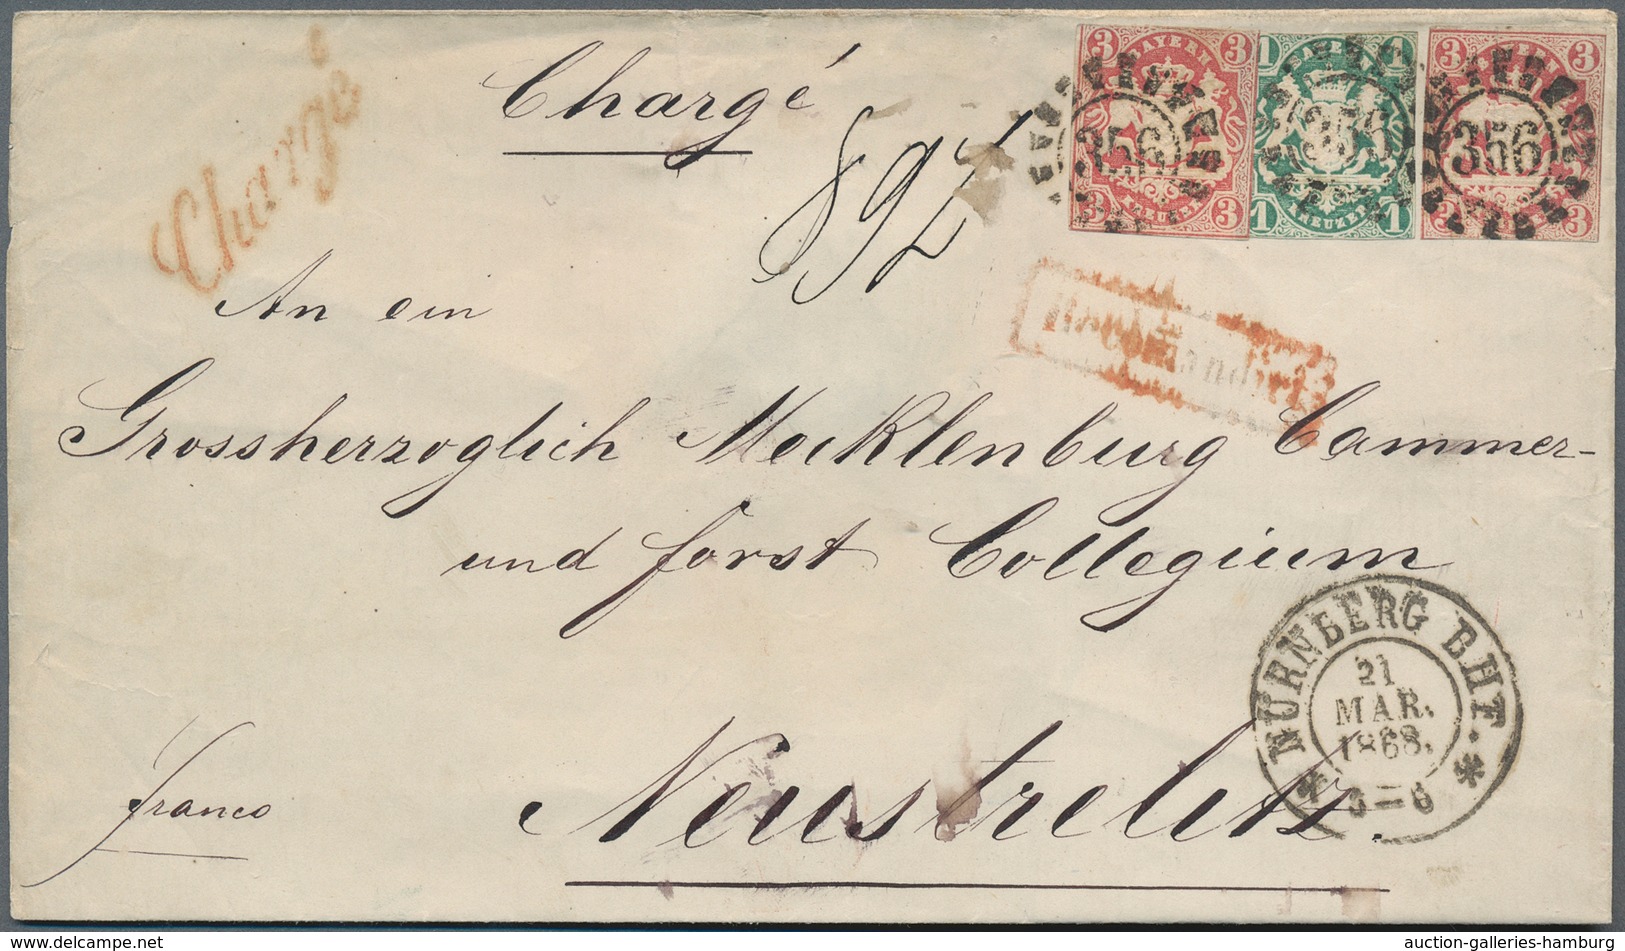 Chargé
Chargé
892
3 BAYERN 3
3 KREUZER 3
356
1 1
1 KREUZER 1
356
3 3
3 3
356
An ein
Grossherzoglich Mecklenburg Cammer-
und forst Collegium
Neustrelitz.
franco
NÜRNBERG BHF.
21
MAR.
1868.
auction-galleries-hamburg